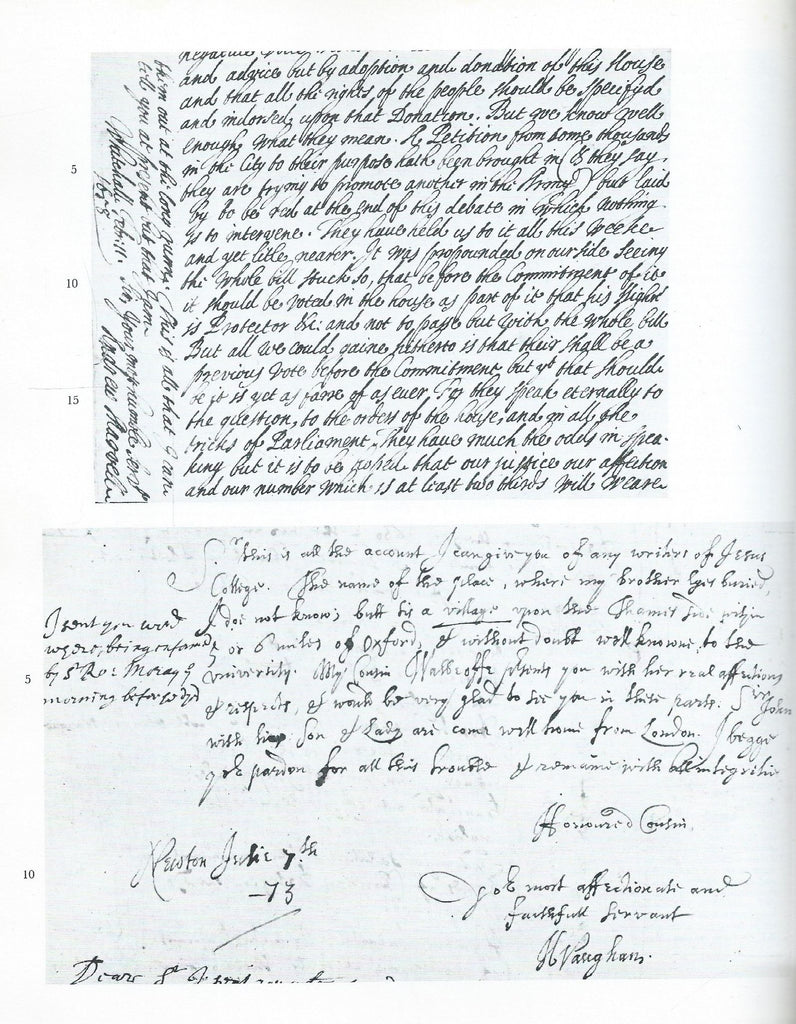 negative
and advice but by adoption and donation of this House
and that all the rights of the people should be specifyd
and indorsed upon that Donation. But we know well
enough what they mean. A Petition from some thousands
5
in the City to their purpose hath been brought in (& they say
they are trying to promote another in the Army) but laid
by to be red at the end of this debate in which nothing
is to intervene. They have held us to it all this weeke
and yet litle nearer. It was propounded on our side seeing
10
the whole bill stuck so, that before the Commitment of it
it should be voted in the house as part of it that his Right
is Protector &c: and not to passe but with the whole bill
But all we could gaine hitherto is that their shall be a
previous vote before the Commitment but yt that should
15
be it is yet as farre of as ever. For they speak eternally to
the question, to the orders of the house, and in all the
tricks of Parliament. They have much the odds in spea-
king but it is to be hoped that our justice our affection
and our number which is at least two thirds will weare
them out at the long runne. This is all that I can
tell you at present but that I am
Sir, Your most humble servt
Whitehall Febr: 11.
1658
Andrew Marvell
Sr. this is all the account I can give you of any writers of Jesus
College. The name of the place, where my brother lyes buried,
I doe not know; butt tis a village upon the Thames side within
5 or 6 miles of Oxford, & without doubt well knowne to the
5
University. My Cousin Walbeoffe psents you with her real affections
& respects, & would be very glad to see you in these parts. Sr John
with his Son & Lady are come well home from London. I begge
yor pardon for all this trouble & remaine with all integritie
I sent you word
where, being enformed
by Sr Ro: Moray ye
morning before
Honoured Cousin,
Newton Julie 7th
–73
10
yor most affectionate and
faithfull servant
H Vaughan.
Dear Sr